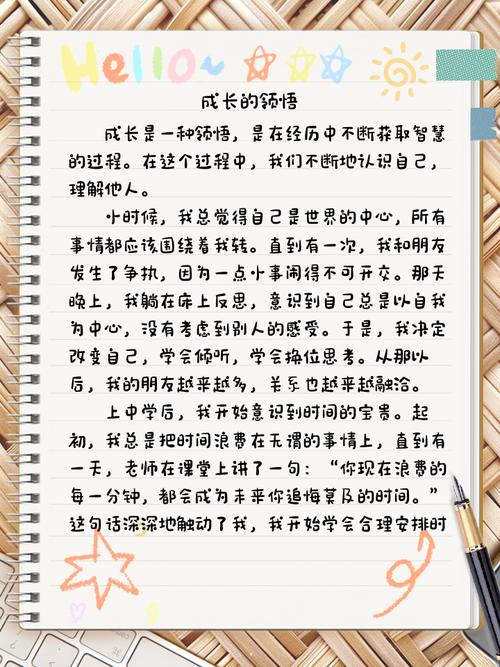 Hello~
成长的领悟
成长是一种领悟，是在经历中不断获取智慧
的过程。在这个过程中，我们不断地认识自己，
理解他人。
小时候，我总觉得自己是世界的中心，所有
事情都应该围绕着我转。直到有一次，我和朋友
发生了争执，因为一点小事闹得不可开交。那天
晚上，我躺在床上反思，意识到自己总是以自我
为中心，没有考虑到别人的感受。于是，我决定
改变自己，学会倾听，学会换位思考。从那以
后，我的朋友越来越多，关系也越来越融洽。
上中学后，我开始意识到时间的宝贵。起
初，我总是把时间浪费在无谓的事情上，直到有
一天，老师在课堂上讲了一句：“你现在浪费的
每一分钟，都会成为未来你追悔莫及的时间。”
这句话深深地触动了我，我开始学会合理安排时